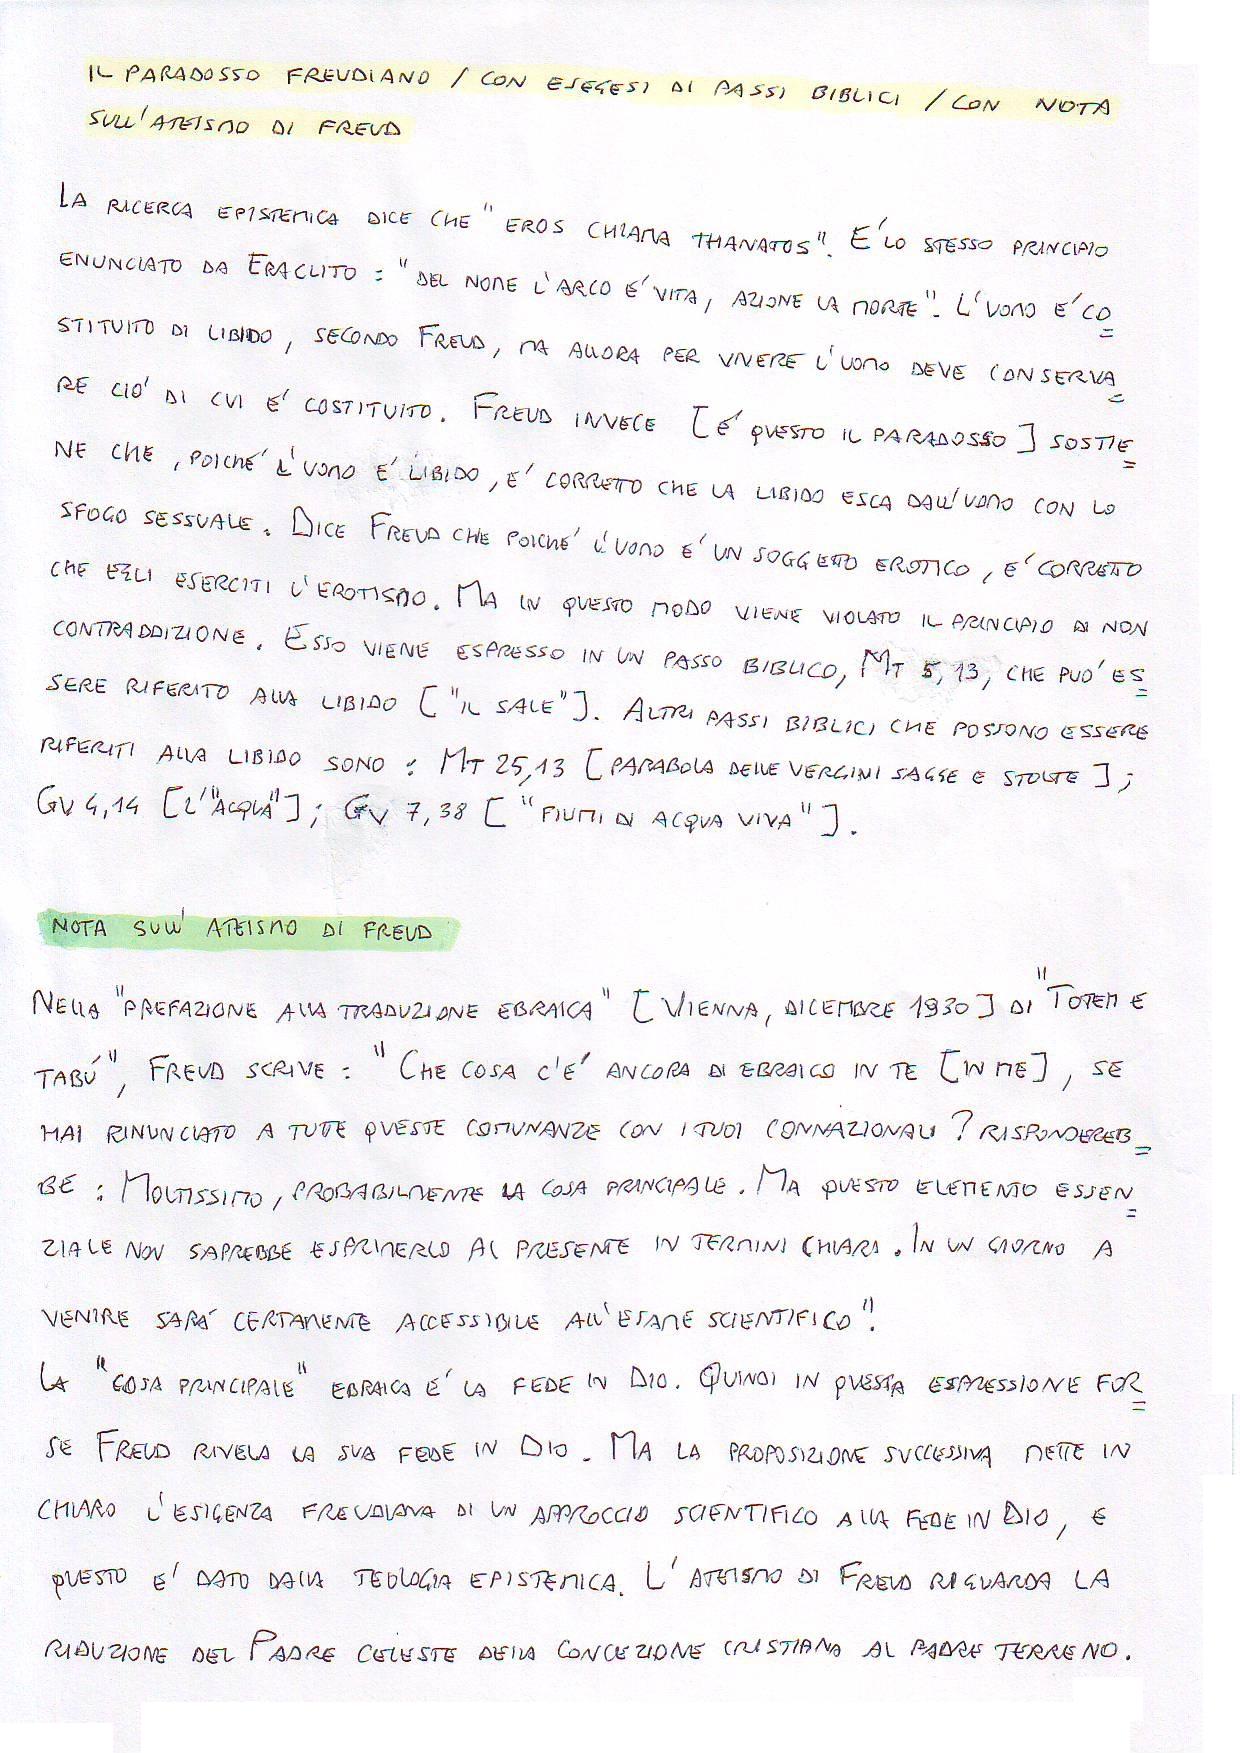 IL PARADOSSO FREUDIANO / CON ESEGESI DI PASSI BIBLICI / CON NOTA
SULL'ATEISMO DI FREUD
LA RICERCA EPISTEMICA DICE CHE "EROS CHIAMA THANATOS". E' LO STESSO PRINCIPIO
ENUNCIATO DA ERACLITO : "DEL NOME L'ARCO E' VITA, AZIONE LA MORTE". L'UOMO E' CO=
STITUITO DI LIBIDO, SECONDO FREUD, MA ALLORA PER VIVERE L'UOMO DEVE CONSERVA=
RE CIO' DI CUI E' COSTITUITO. FREUD INVECE [E' QUESTO IL PARADOSSO] SOSTIE=
NE CHE, POICHE' L'UOMO E' LIBIDO, E' CORRETTO CHE LA LIBIDO ESCA DALL'UOMO CON LO
SFOGO SESSUALE. DICE FREUD CHE POICHE' L'UOMO E' UN SOGGETTO EROTICO, E' CORRETTO
CHE EGLI ESERCITI L'EROTISMO. MA IN QUESTO MODO VIENE VIOLATO IL PRINCIPIO DI NON
CONTRADDIZIONE. ESSO VIENE ESPRESSO IN UN PASSO BIBLICO, MT 5,13, CHE PUO' ES=
SERE RIFERITO ALLA LIBIDO ["IL SALE"]. ALTRI PASSI BIBLICI CHE POSSONO ESSERE
RIFERITI ALLA LIBIDO SONO : MT 25,13 [PARABOLA DELLE VERGINI SAGGE E STOLTE];
GV 4,14 [L'"ACQUA"]; GV 7,38 ["FIUMI DI ACQUA VIVA"].
NOTA SULL'ATEISMO DI FREUD
NELLA "PREFAZIONE ALLA TRADUZIONE EBRAICA" [VIENNA, DICEMBRE 1930] DI "TOTEM E
TABU'", FREUD SCRIVE : "CHE COSA C'E' ANCORA DI EBRAICO IN TE [IN ME], SE
HAI RINUNCIATO A TUTTE QUESTE COMUNANZE CON I TUOI CONNAZIONALI ? RISPONDEREB=
BE : MOLTISSIMO, PROBABILMENTE LA COSA PRINCIPALE. MA QUESTO ELEMENTO ESSEN=
ZIALE NON SAPREBBE ESPRIMERLO AL PRESENTE IN TERMINI CHIARI. IN UN GIORNO A
VENIRE SARA' CERTAMENTE ACCESSIBILE ALL'ESAME SCIENTIFICO".
LA "COSA PRINCIPALE" EBRAICA E' LA FEDE IN DIO. QUINDI IN QUESTA ESPRESSIONE FOR=
SE FREUD RIVELA LA SUA FEDE IN DIO. MA LA PROPOSIZIONE SUCCESSIVA METTE IN
CHIARO L'ESIGENZA FREUDIANA DI UN APPROCCIO SCIENTIFICO ALLA FEDE IN DIO, E
QUESTO E' DATO DALLA TEOLOGIA EPISTEMICA. L'ATEISMO DI FREUD RIGUARDA LA
RIDUZIONE DEL PADRE CELESTE DELLA CONCEZIONE CRISTIANA AL PADRE TERRENO.